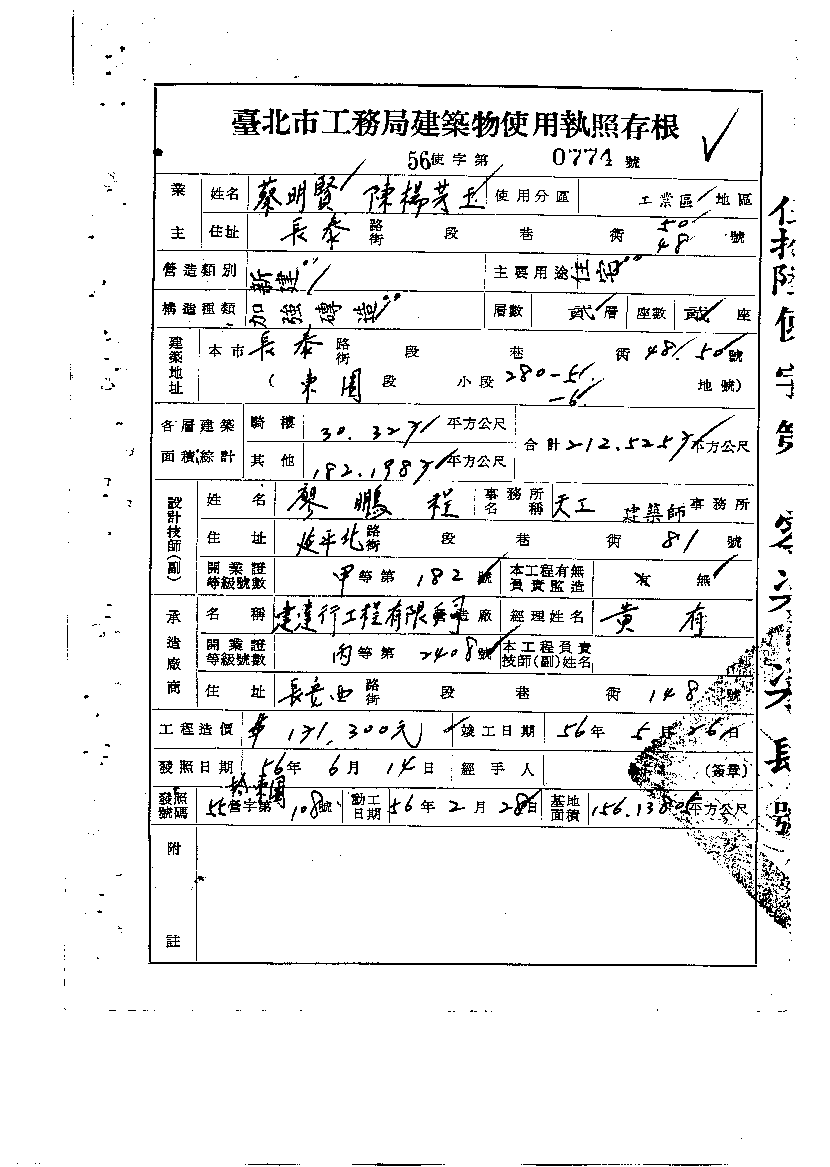 臺北市工務局建築物使用執照存根
56使字第 0774 號
業主 姓名 蔡明賢 陳楊芳玉 使用分區 工業區 地區
住址 長泰 路街 段 巷 衖 50 48 號
營造類別 新建 主要用途 住宅
構造種類 加強磚造 層數 貳 層 座數 貳 座
建築地址 本市 長泰 路街 段 巷 衖 48.50 號
( 東園 段 小段 280-5 -6 地號)
各層建築面積綜計 騎樓 30.32 平方公尺 合計 212.525 平方公尺
其他 182.198 平方公尺
設計技師(副) 姓名 廖鵬程 事務所名稱 天工 建築師 事務所
住址 延平北 路街 段 巷 衖 81 號
開業證等級號數 甲 等第 182 號 本工程有無負責監造 有 無
承造廠商 名稱 建達行工程有限公司 營造廠 經理姓名 黃有
開業證等級號數 丙 等第 2408 號 本工程負責技師(副)姓名
住址 長安西 路街 段 巷 衖 148 號
工程造價 131,300元 竣工日期 56年 5月 26日
發照日期 56年 6月 14日 經手人 (簽章)
發照號碼 55營字第 108號 動工日期 56年 2月 28日 基地面積 156.1380 平方公尺
附註